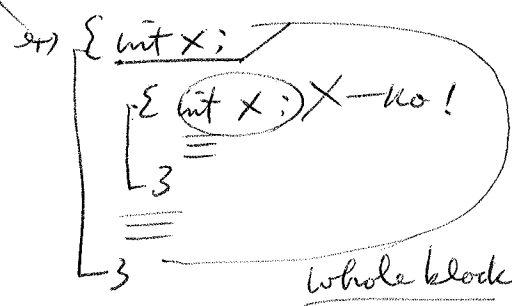 { int x;
{ int x; X — No!
}
}
whole block